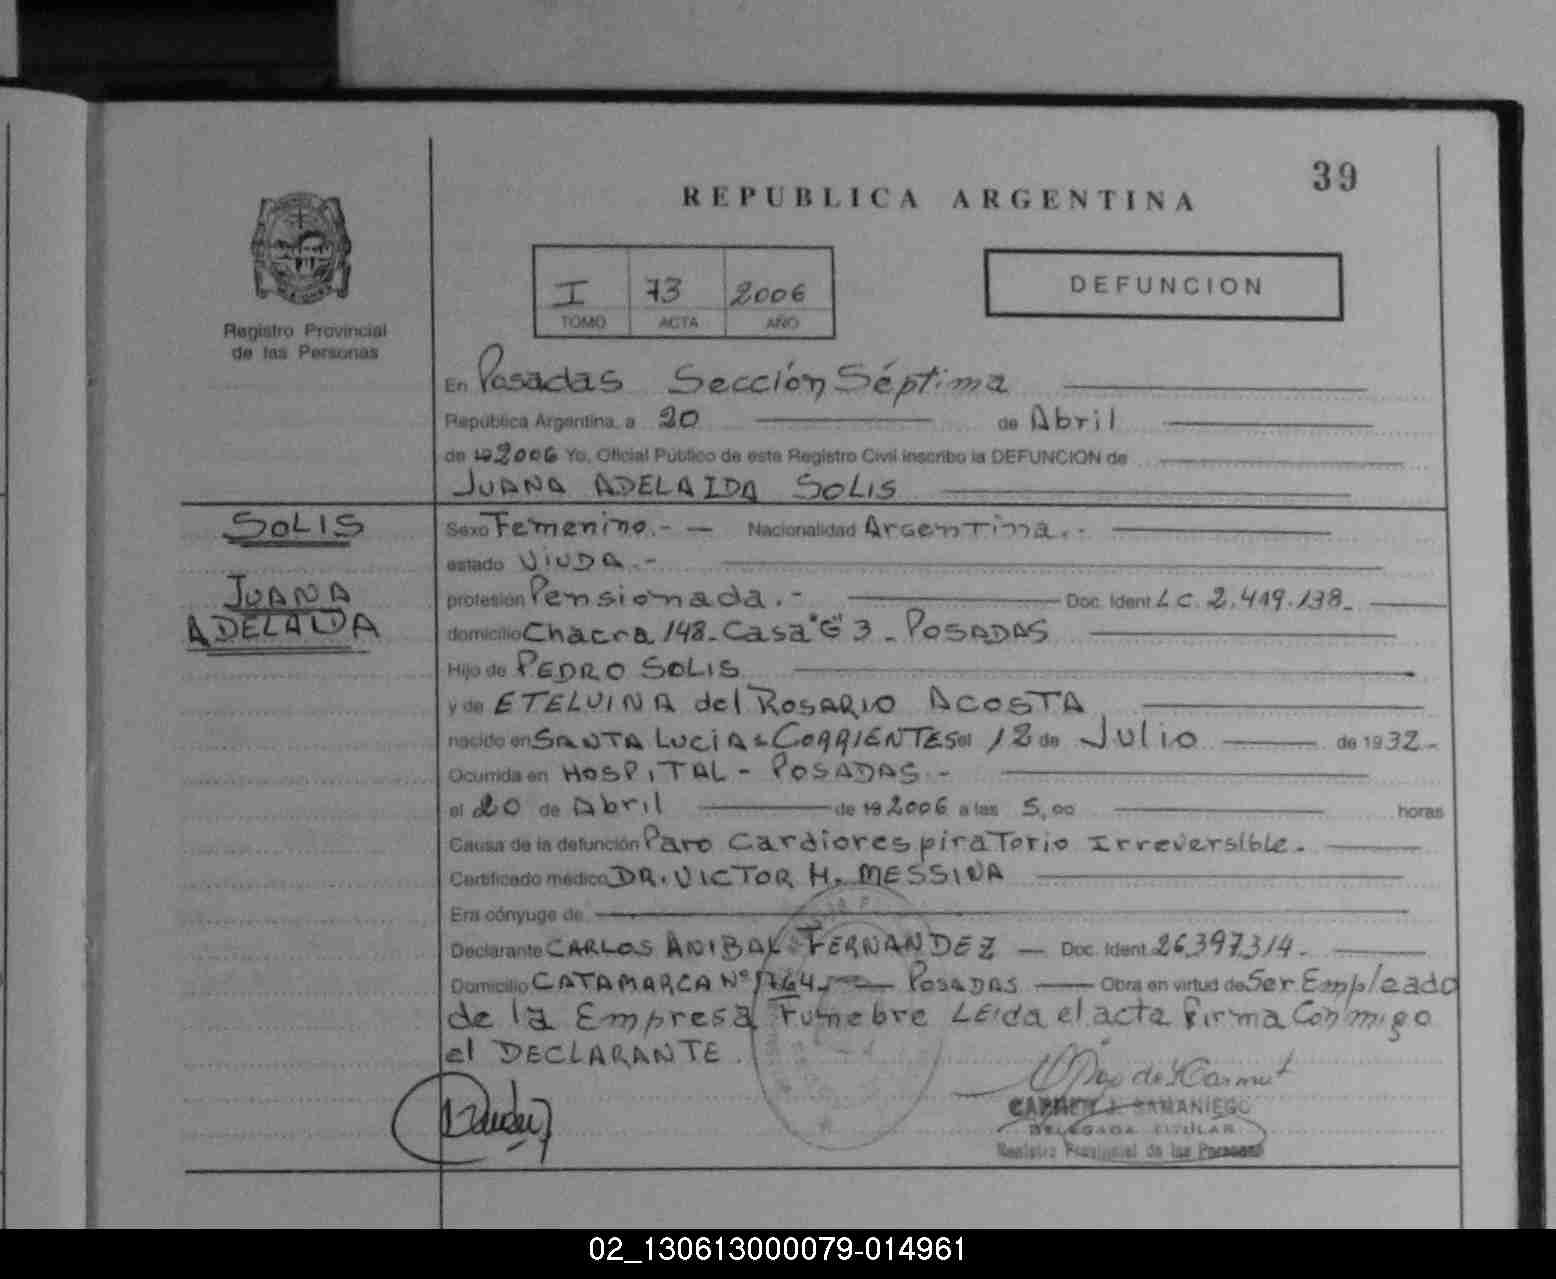 39
REPUBLICA ARGENTINA
I 73 2006
TOMO ACTA AÑO
DEFUNCION
Registro Provincial
de las Personas
En Posadas Sección Séptima
República Argentina, a 20 de Abril
de 19 2006 Yo, Oficial Público de este Registro Civil inscribo la DEFUNCION de
JUANA ADELAIDA SOLIS
SOLIS
JUANA
ADELAIDA
Sexo Femenino.- — Nacionalidad Argentina.-
estado VIUDA.-
profesión Pensionada.- Doc. Ident. L C. 2.419.138-
domicilio Chacra 148- Casa "G" 3 - POSADAS
Hijo de PEDRO SOLIS
y de ETELVINA del ROSARIO ACOSTA
nacido en SANTA LUCIA - CORRIENTES el 12 de Julio de 1932-
Ocurrida en HOSPITAL - POSADAS.-
el 20 de Abril de 19 2006 a las 5,00 horas
Causa de la defunción Paro Cardiorespiratorio Irreversible.
Certificado médico DR. VICTOR H. MESSINA
Era cónyuge de
Declarante CARLOS ANIBAL FERNANDEZ — Doc. Ident. 26.397.314-
Domicilio CATAMARCA Nº 1764 - POSADAS — Obra en virtud de Ser Empleado
de la Empresa Funebre LEida el acta firma Conmigo
el DECLARANTE.
CARMEN J. SAMANIEGO
DELEGADA TITULAR
Registro Provincial de las Personas
02_130613000079-014961